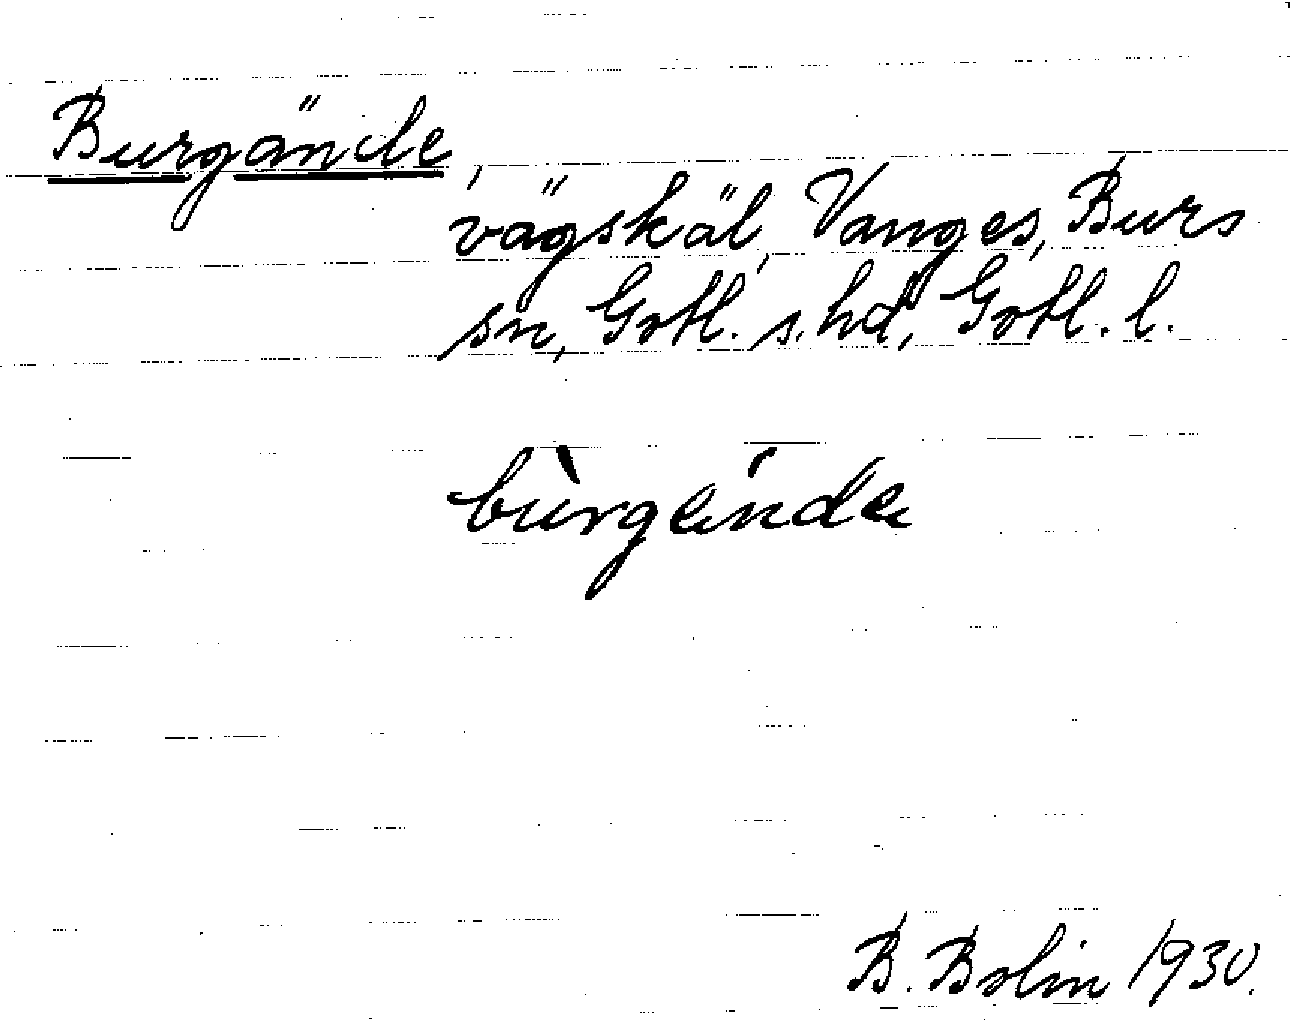 Burgände,
vägskäl, Vanges, Burs
sn, Gotl. s. hd, Gotl. l.
bùrgä́nde
B. Bolin 1930.